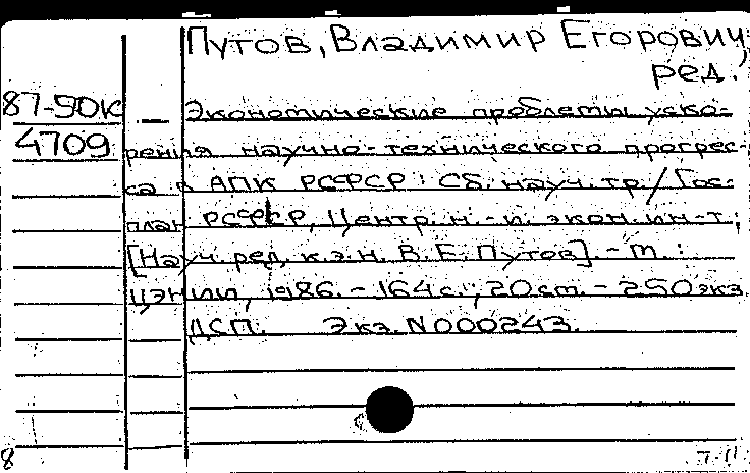 Путов, Владимир Егорович,
ред.
87-50к — Экономические проблемы уско-
4709 рения научно-технического прогрес-
са в АПК РСФСР : Сб. науч. тр. / Гос-
план РСФСР, Центр. н.-и. экон. ин-т;
[Науч. ред. к.э.н. В. Е. Путов]. - М. :
ЦЭНИИ, 1986. - 164 с.; 20 см. - 250 экз.
ДСП. Экз. N 000243.
8